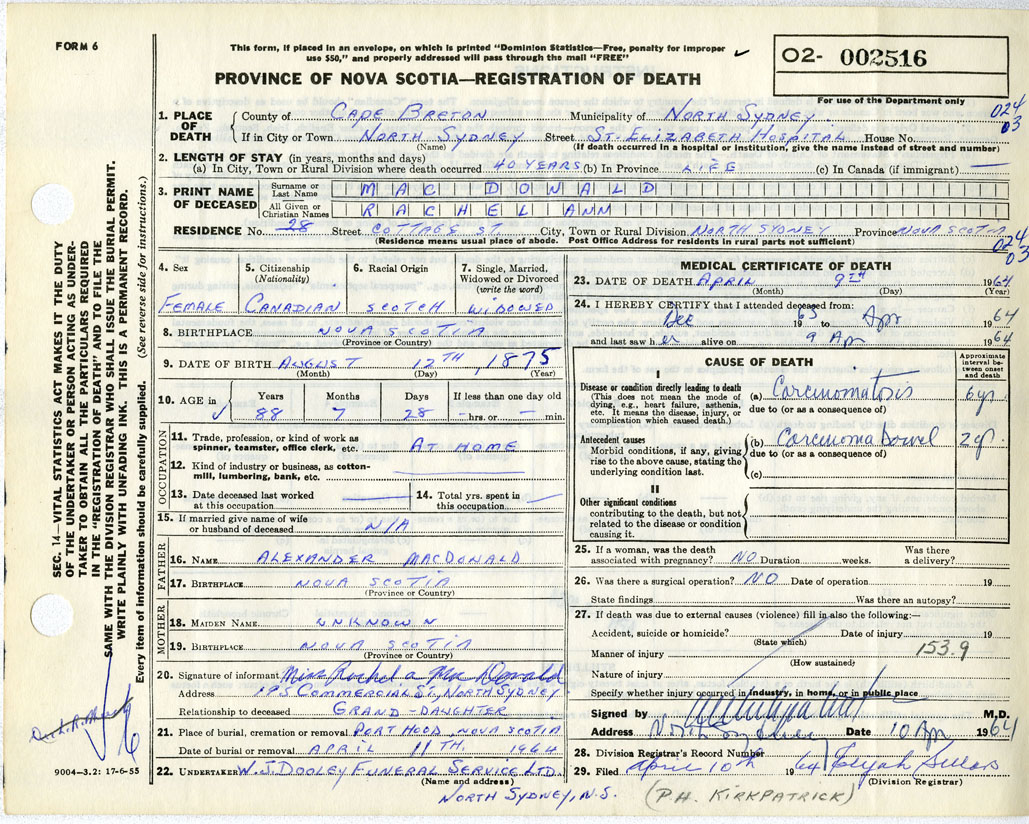 FORM 6
This form, if placed in an envelope, on which is printed "Dominion Statistics—Free, penalty for improper
use $50," and properly addressed will pass through the mail "FREE" ✓
O2- 002516
PROVINCE OF NOVA SCOTIA—REGISTRATION OF DEATH
For use of the Department only
024
03
1. PLACE OF DEATH
County of CAPE BRETON Municipality of NORTH SYDNEY
If in City or Town NORTH SYDNEY Street ST. ELIZABETH HOSPITAL House No.
(Name) (If death occurred in a hospital or institution, give the name instead of street and number)
2. LENGTH OF STAY (in years, months and days)
(a) In City, Town or Rural Division where death occurred 40 YEARS (b) In Province LIFE (c) In Canada (if immigrant) —
3. PRINT NAME OF DECEASED
Surname or Last Name MAC DOWALD
All Given or Christian Names RACHEL ANN
RESIDENCE No. 28 Street COTTAGE ST. City, Town or Rural Division NORTH SYDNEY Province NOVA SCOTIA
(Residence means usual place of abode. Post Office Address for residents in rural parts not sufficient)
024
03
4. Sex 5. Citizenship (Nationality) 6. Racial Origin 7. Single, Married, Widowed or Divorced (write the word)
FEMALE CANADIAN SCOTCH WIDOWED
8. BIRTHPLACE NOVA SCOTIA
(Province or Country)
9. DATE OF BIRTH AUGUST 12TH, 1875
(Month) (Day) (Year)
10. AGE in Years Months Days If less than one day old
✓ 88 7 28 hrs. or min.
OCCUPATION
11. Trade, profession, or kind of work as
spinner, teamster, office clerk, etc. AT HOME
12. Kind of industry or business, as cotton-
mill, lumbering, bank, etc. —
13. Date deceased last worked
at this occupation —
14. Total yrs. spent in
this occupation —
15. If married give name of wife
or husband of deceased N/A
FATHER
16. NAME ALEXANDER MACDONALD
17. BIRTHPLACE NOVA SCOTIA
(Province or Country)
MOTHER
18. MAIDEN NAME UNKNOWN
19. BIRTHPLACE NOVA SCOTIA
(Province or Country)
20. Signature of informant Miss Rachel a Mac Donald
Address 195 COMMERCIAL ST, NORTH SYDNEY
Relationship to deceased GRAND-DAUGHTER
21. Place of burial, cremation or removal PORT HOOD, NOVA SCOTIA
Date of burial or removal APRIL 11TH. 1964
22. UNDERTAKER W. J. DOOLEY FUNERAL SERVICE LTD.
(Name and address)
NORTH SYDNEY, N.S.
MEDICAL CERTIFICATE OF DEATH
23. DATE OF DEATH APRIL 9TH 1964
(Month) (Day) (Year)
24. I HEREBY CERTIFY that I attended deceased from:
Dec 1963 to Apr 1964
and last saw her alive on 9 Apr 1964
CAUSE OF DEATH
Approximate interval between onset and death
I
Disease or condition directly leading to death
(This does not mean the mode of
dying, e.g., heart failure, asthenia,
etc. It means the disease, injury, or
complication which caused death.)
(a) Carcinomatosis 6 yr.
due to (or as a consequence of)
Antecedent causes
Morbid conditions, if any, giving
rise to the above cause, stating the
underlying condition last.
(b) Carcinoma Bowel 2 yr.
due to (or as a consequence of)
(c)
II
Other significant conditions
contributing to the death, but not
related to the disease or condition
causing it.
25. If a woman, was the death
associated with pregnancy? NO Duration weeks. Was there
a delivery?
26. Was there a surgical operation? NO Date of operation 19
State findings Was there an autopsy?
27. If death was due to external causes (violence) fill in also the following:—
Accident, suicide or homicide? Date of injury 19
(State which)
Manner of injury 153.9
(How sustained)
Nature of injury
Specify whether injury occurred in industry, in home, or in public place
Signed by M.D.
Address North Sydney Date 10 Apr 1964
28. Division Registrar's Record Number
29. Filed April 10th 1964 Elijah Sellars
(Division Registrar)
(P.H. KIRKPATRICK)
SEC. 14—VITAL STATISTICS ACT MAKES IT THE DUTY
OF THE UNDERTAKER OR PERSON ACTING AS UNDER-
TAKER TO OBTAIN ALL THE PARTICULARS REQUIRED
IN THE "REGISTRATION OF DEATH" AND TO FILE THE
SAME WITH THE DIVISION REGISTRAR WHO SHALL ISSUE THE BURIAL PERMIT.
WRITE PLAINLY WITH UNFADING INK. THIS IS A PERMANENT RECORD.
Every item of information should be carefully supplied. (See reverse side for instructions.)
9004-3.2: 17-6-55